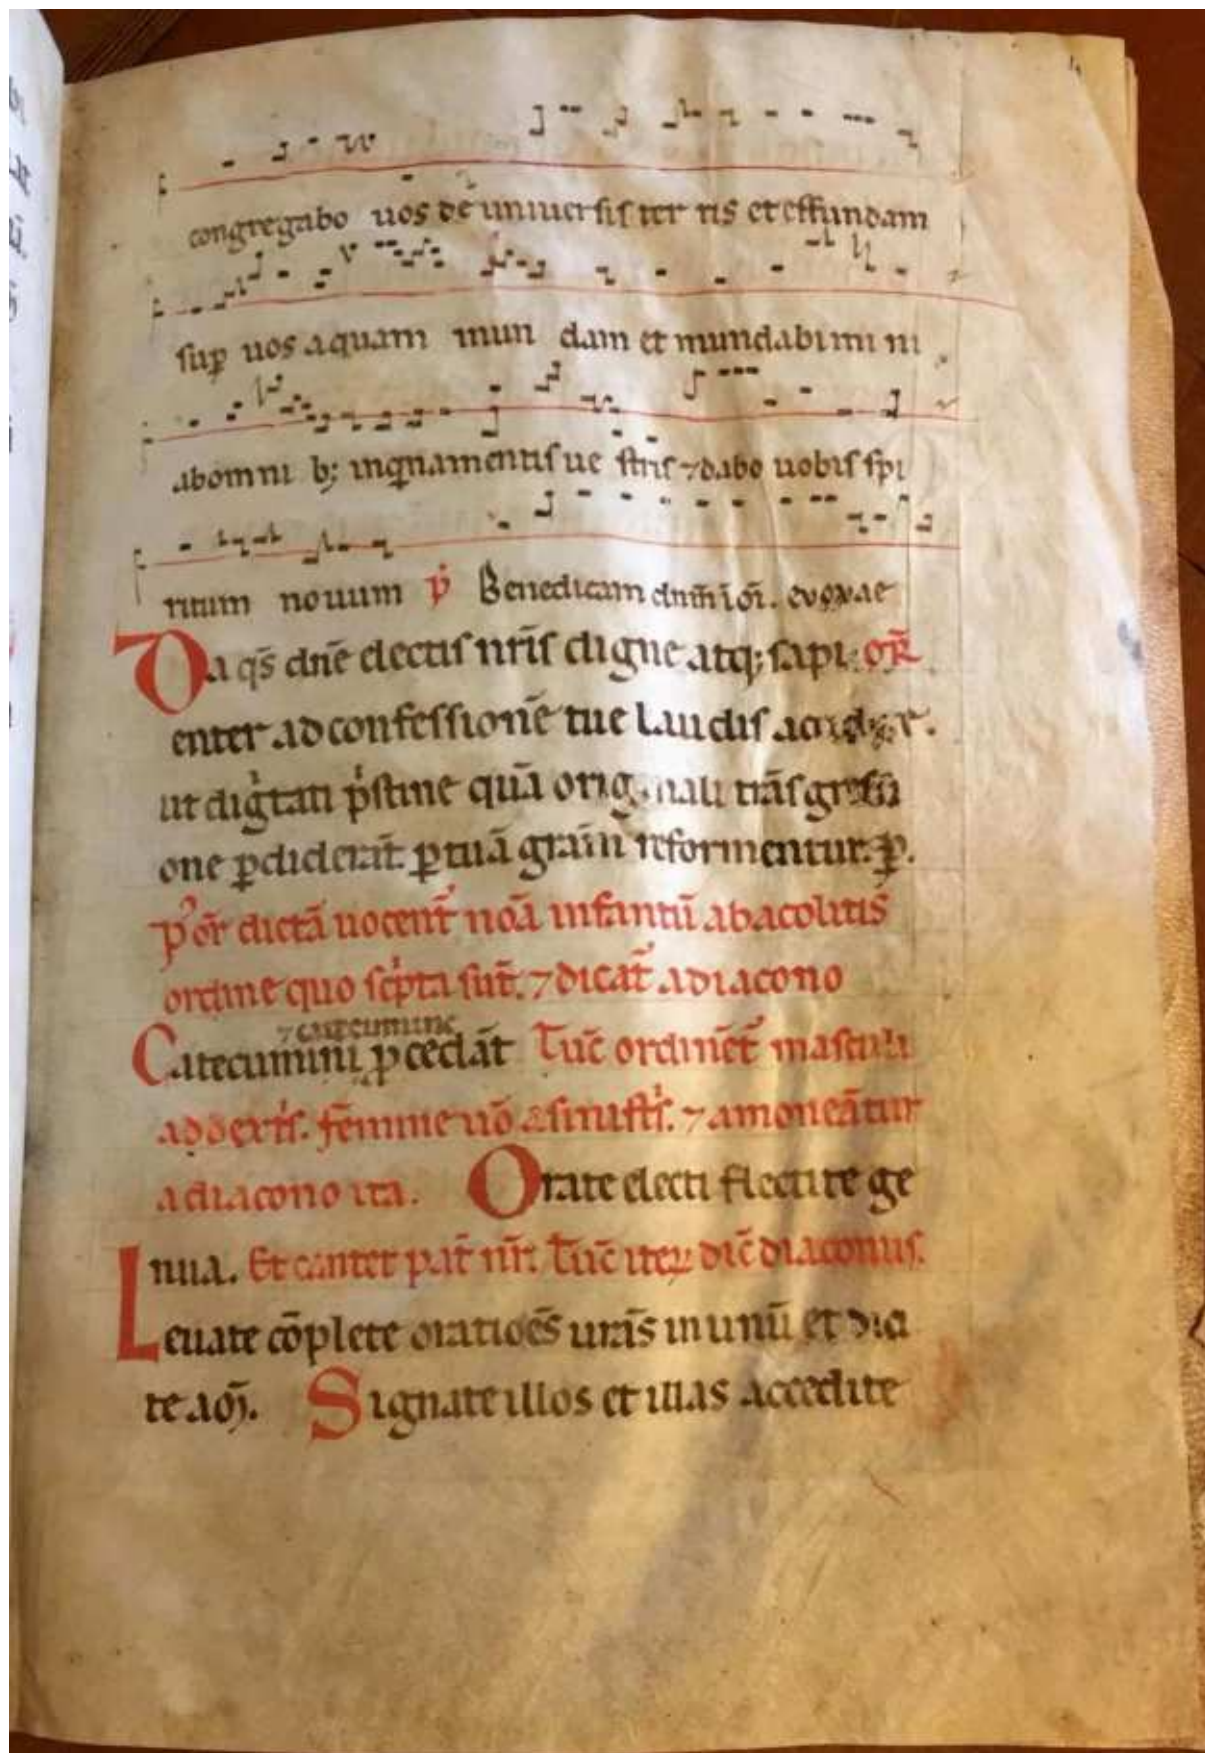 congregabo uos de uniuersis ter ris et effundam
sup̱ uos aquam mun dam et mundabimi ni
abomni b; inqnamentis ue stris ⁊dabo uobis spi
ritum nouum p̾ Benedicam dnm̄ i oı̄. euouae
Da qs̄ dnē electis nrı̄s digne atq; sapi. OR̄
enter ad confessionē tue laudis
ut dignı̄tati pı̾stine quā originali trāsgressi
one ꝑdiderāt. ꝑ tuā gratı̄ā reformentur. ꝑ.
P̾ or̄ dictā uocent̄ noā infantū abacolitis
ordine quo scı̾pta sūt. ⁊ dicat̄ adiacono
⁊ catecumine
Catecumini ꝓcedāt Tūc ordinēt̄ masculi
ad dextı̾s. femine uō a sinistı̾s. ⁊ amoneātur
a diacono ita. Orate electi flectite ge
nua. Et cantet pat̄ nr̄. Tūc iteꝝ dic̄ diaconus.
Leuate cōplete oratioēs urās in unū et dici
te am̄. Signate illos et illas accedite